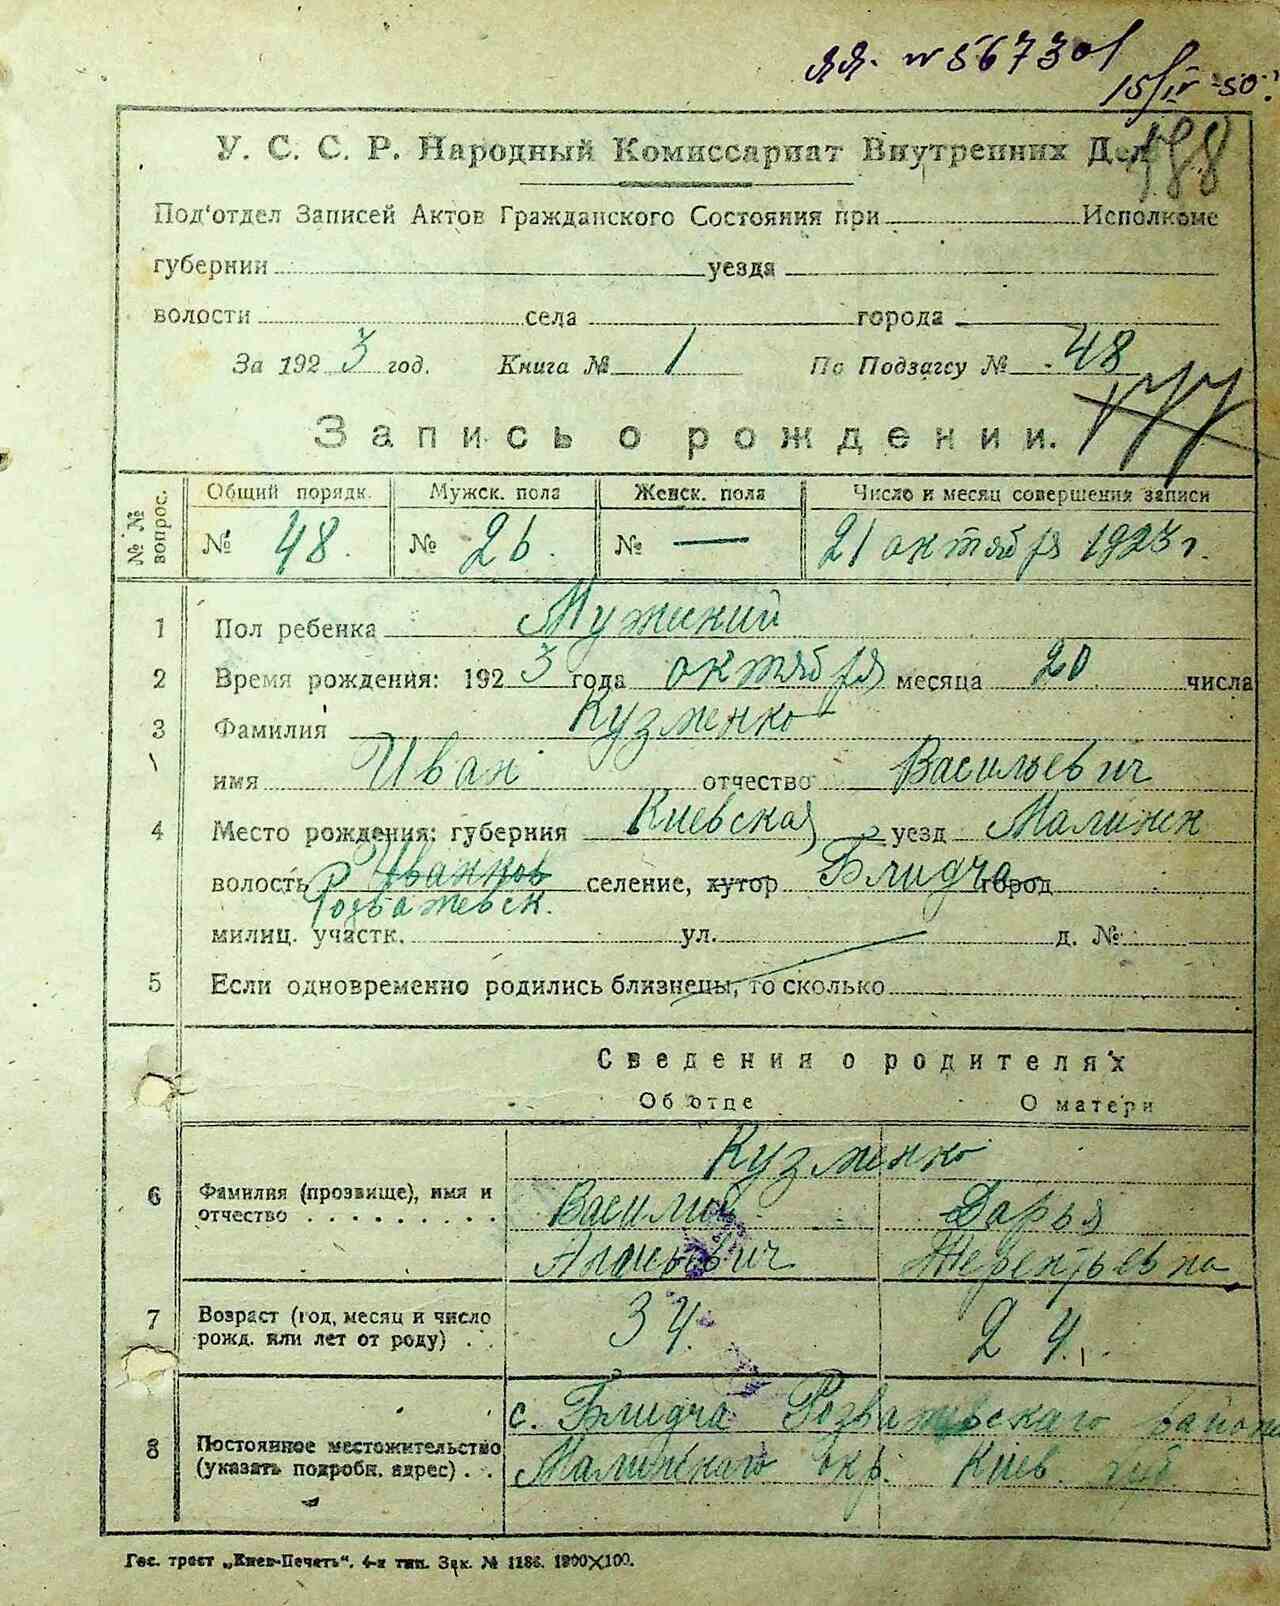 ЯЯ. № 567301
15/IV-50г.
188
У. С. С. Р. Народный Комиссариат Внутренних Дел
Под'отдел Записей Актов Гражданского Состояния при Исполкоме
губернии уезда
волости села города
За 1923 год. Книга № 1 По Подзагсу № 48
177
Запись о рождении.
№№ вопрос. Общий порядк. Мужск. пола Женск. пола Число и месяц совершения записи
№ 48. № 26. № — 21 октября 1923 г.
1 Пол ребенка Мужеский
2 Время рождения: 1923 года октября месяца 20 числа
3 Фамилия Кузменко
имя Иван отчество Васильевич
4 Место рождения: губерния Киевская уезд Малинск
волость Р Иванков селение, хутор Блидча город
Розважевск.
милиц. участк. ул. д. №
5 Если одновременно родились близнецы, то сколько
Сведения о родителях
Об отце О матери
Кузменко
6 Фамилия (прозвище), имя и отчество Василий Дарья
Терентьевна
7 Возраст (год, месяц и число рожд. или лет от роду) 34. 24.
8 Постоянное местожительство (указать подробн. адрес) с. Блидча Розважевскаго района
Малинскаго окр. Киев. губ
Гос. трест „Киев-Печать“. 4-я тип. Зак. № 1186. 1900×100.